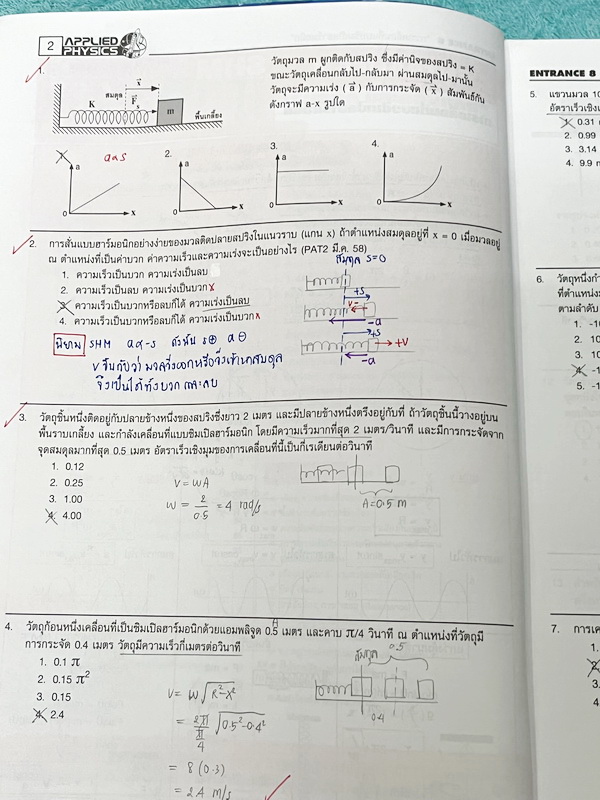 2 APPLIED PHYSICS
1.
วัตถุมวล m ผูกติดกับสปริง ซึ่งมีค่านิจของสปริง = K
ขณะวัตถุเคลื่อนกลับไป-กลับมา ผ่านสมดุลไป-มานั้น
วัตถุจะมีความเร่ง ( a ) กับการกระจัด ( x ) สัมพันธ์กัน
ดังกราฟ a-x รูปใด
x
สมดุล
F s
K
m
พื้นเกลี้ยง
a α s
2.
3.
4.
a
a
a
a
0 x
0 x
0 x
0 x
2. การสั่นแบบฮาร์มอนิกอย่างง่ายของมวลติดปลายสปริงในแนวราบ (แกน x) ถ้าตำแหน่งสมดุลอยู่ที่ x = 0 เมื่อมวลอยู่
ณ ตำแหน่งที่เป็นค่าบวก ค่าความเร็วและความเร่งจะเป็นอย่างไร (PAT2 มี.ค. 58)
สมดุล s=0
1. ความเร็วเป็นบวก ความเร่งเป็นลบ
2. ความเร็วเป็นลบ ความเร่งเป็นบวก x
3. ความเร็วเป็นบวกหรือลบก็ได้ ความเร่งเป็นลบ
4. ความเร็วเป็นบวกหรือลบก็ได้ ความเร่งเป็นบวก x
+s
v-
-a
+s
+v
-a
นิยาม SHM a α -s ดังนั้น s ⊕ a ⊖
v ขึ้นกับว่า มวลวิ่งออกหรือวิ่งเข้าหาสมดุล
จึงเป็นได้ทั้งบวก และลบ
3. วัตถุชิ้นหนึ่งติดอยู่กับปลายข้างหนึ่งของสปริงซึ่งยาว 2 เมตร และมีปลายข้างหนึ่งตรึงอยู่กับที่ ถ้าวัตถุชิ้นนี้วางอยู่บน
พื้นราบเกลี้ยง และกำลังเคลื่อนที่แบบซิมเปิลฮาร์มอนิก โดยมีความเร็วมากที่สุด 2 เมตร/วินาที และมีการกระจัดจาก
จุดสมดุลมากที่สุด 0.5 เมตร อัตราเร็วเชิงมุมของการเคลื่อนที่นี้เป็นกี่เรเดียนต่อวินาที
1. 0.12
2. 0.25
3. 1.00
4. 4.00
V = WA
W = 2/0.5 = 4 rad/s
A = 0.5 m
4. วัตถุก้อนหนึ่งเคลื่อนที่เป็นซิมเปิลฮาร์มอนิกด้วยแอมพลิจูด 0.5 เมตร และคาบ π/4 วินาที ณ ตำแหน่งที่วัตถุมี
การกระจัด 0.4 เมตร วัตถุมีความเร็วกี่เมตรต่อวินาที
1. 0.1 π
2. 0.15 π²
3. 0.15
4. 2.4
สมดุล 0.5
0.4
V = W√(R²-X²)
= 2π/(π/4) √(0.5²-0.4²)
= 8 (0.3)
= 2.4 m/s
ENTRANCE 8
5. แขวนมวล 10
อัตราเร็วเชิง
1. 0.31
2. 0.99
3. 3.14
4. 9.9
6. วัตถุหนึ่ง
ที่ตำแหน่ง
ตามลำดับ
1. -10
2. 10
3. 10
4. -1
5. -1
7. การเค
1.
2.
3.
4.